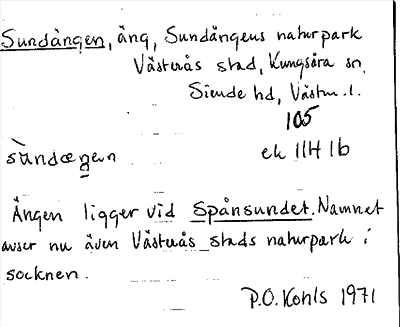 Sundängen, äng, Sundängens naturpark
Västerås stad, Kungsåra sn,
Siende hd, Västm. l.
105
sùndæŋen ek 11H 1b
Ängen ligger vid Spånsundet. Namnet
avser nu även Västerås stads naturpark i
socknen.
P.O. Kohls 1971